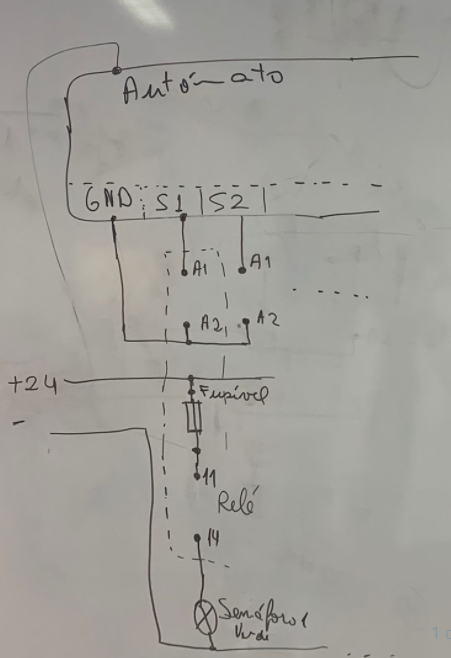 Autómato
GND S1 S2
A1 A1
A2 A2
+24
-
Fusível
11
Relé
14
Semáforo 1
Verde